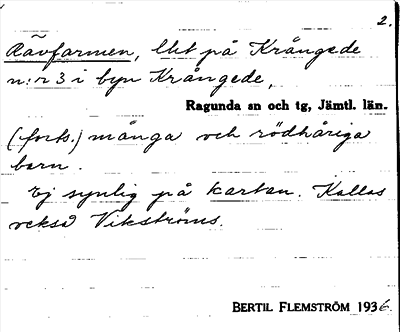 2.
Rävfarmen, lht på Krångede
n:r 3 i byn Krångede,
Ragunda sn och tg, Jämtl. län.
(forts.) många och rödhåriga
barn.
Ej synlig på kartan. Kallas
också Vikströms.
BERTIL FLEMSTRÖM 1936.